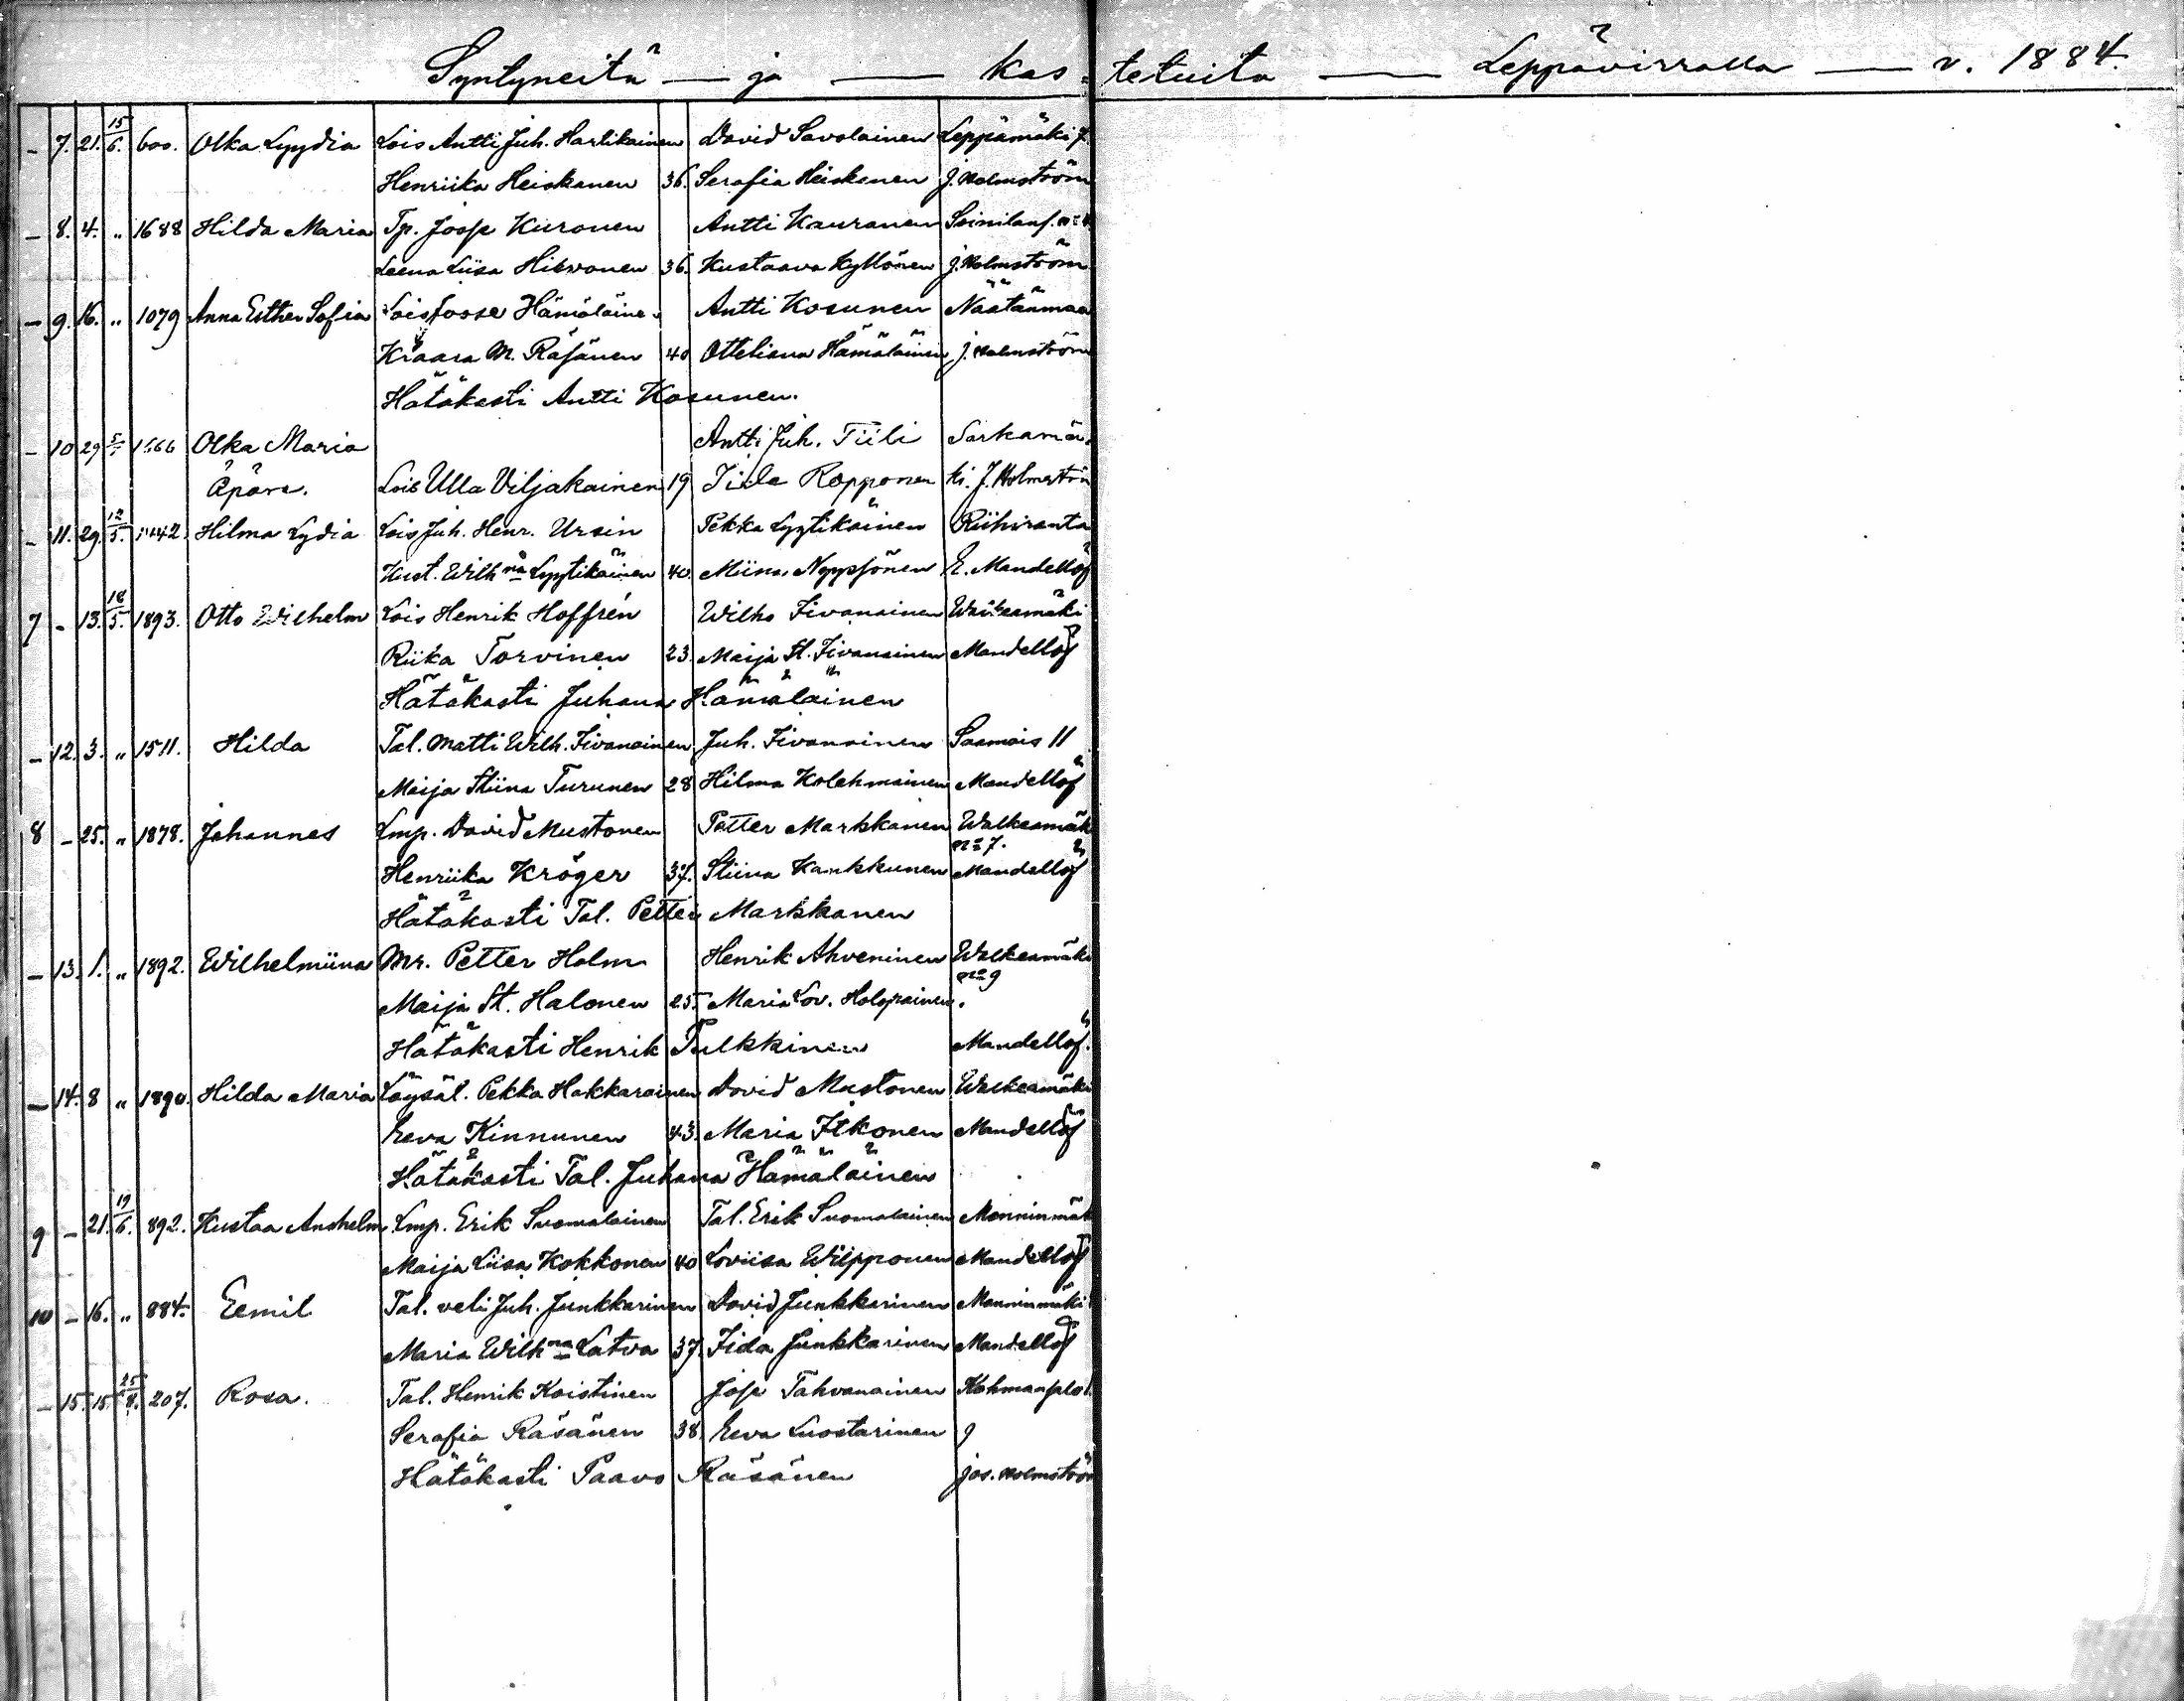 Syntyneitä — ja — Kas=tetuita — Leppävirralla — v. 1884.
– 7. 21. 15/6. 600. Olka Lyydia Lois Antti Juh. Hartikainen David Savolainen Leppämäki 7.
Henriika Heiskanen 36. Serafia Heiskanen J. Holmström
– 8. 4. „ 1688 Hilda Maria Tp. Joose Kuronen Antti Kauranen
Leena Liisa Hirvonen 36. Kustaava Kyllönen J. Holmström
– 9. 16. „ 1079 Anna Esther Sofia Lois Joose Hämäläinen Antti Kosunen Näätänmaa
Kraara M. Räsänen 40 Otteliana Hämäläinen J. Holmström
Hätäkasti Antti Kosunen.
– 10 29 5/7 1666 Olka Maria Antti Juh. Tiili Sarkamä-
Äpärä. Lois Ulla Viljakainen 19 Iida Ropponen ki. J. Holmström
– 11. 29. 12/5. 1442 Hilma Lydia Lois Juh. Henr. Ursin Pekka Lyytikäinen Riihiranta
Kust. Wilhna Lyytikäinen 40. Miina Nyyssönen E. Mandellöf
7 – 13. 18/5. 1893. Otto Wilhelm Lois Henrik Hoffrén Wilho Iivanainen Walkeamäki
Riika Torvinen 23. Maija St. Iivanainen Mandellöf
Hätäkasti Juhana Hämäläinen
– 12. 3. „ 1511. Hilda Tal. Matti Wilh. Iivanainen Juh. Iivanainen Saamais 11
Maija Stiina Turunen 28 Hilma Kolehmainen Mandellöf
8 – 25. „ 1878. Johannes Lmp. David Mustonen Petter Markkanen Walkeamäk
no 7.
Henriika Kröger 37. Stiina Kankkunen Mandellöf
Hätäkasti Tal. Petter Markkanen
– 13. 1. „ 1892. Wilhelmiina Mr. Petter Holm Henrik Ahveninen Walkeamäki
no 9
Maija St. Halonen 25. Maria Lov. Holopainen.
Hätäkasti Henrik Pulkkinen Mandellöf.
– 14. 8 „ 1890. Hilda Maria Löysäl. Pekka Hakkarainen David Mustonen Walkeamäki
Eeva Kinnunen 43. Maria Itkonen Mandellöf
Hätäkasti Tal. Juhana Hämäläinen
9 – 21. 19/6. 892. Kustaa Anshelm Lmp. Erik Suomalainen Tal. Erik Suomalainen Monninmäk
Maija Liisa Kokkonen 40 Loviisa Wilpponen Mandellöf
10 – 16. „ 884. Eemil Tal. veli Juh. Junkkarinen David Junkkarinen Monninmäki
Maria Wilhna Latva 37. Iida Junkkarinen Mandellöf
– 15. 15. 25/8. 207. Rosa. Tal. Henrik Koistinen Jose Tahvanainen
Serafia Räsänen 38. Eeva Luostarinen 9
Hätäkasti Paavo Räsänen Jos. Holmström